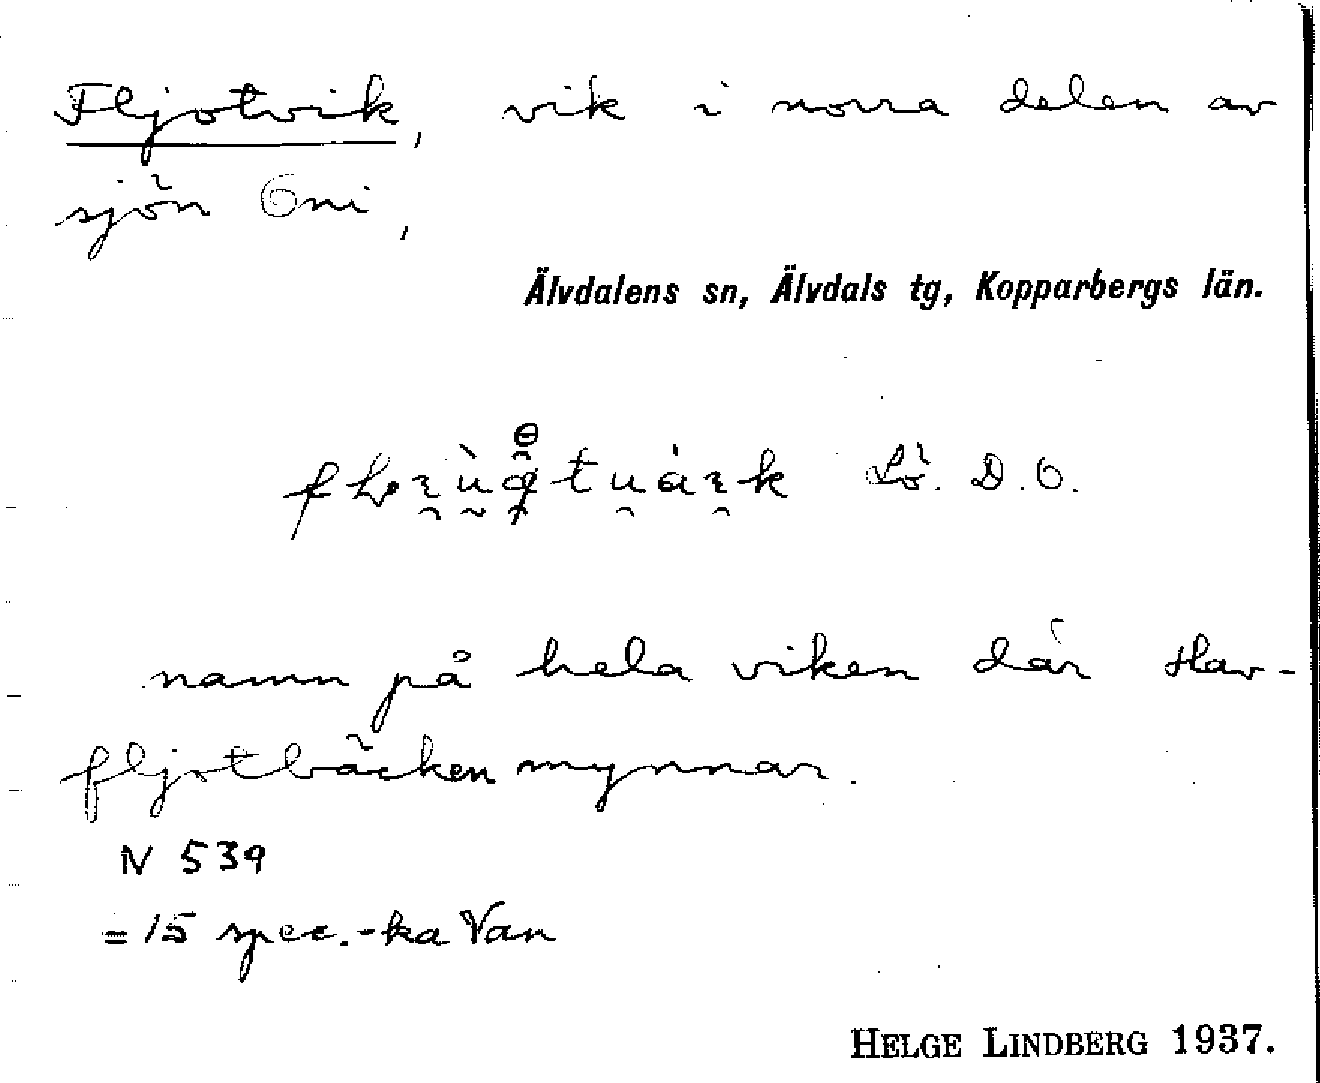 Fljotvik, vik i norra delen av
sjön Oni,
Älvdalens sn, Älvdals tg, Kopparbergs län.
Lö. D.O.
namn på hela viken där Hav-
fljotbäcken mynnar.
N 539
= 15 spec.-ka Van
HELGE LINDBERG 1937.